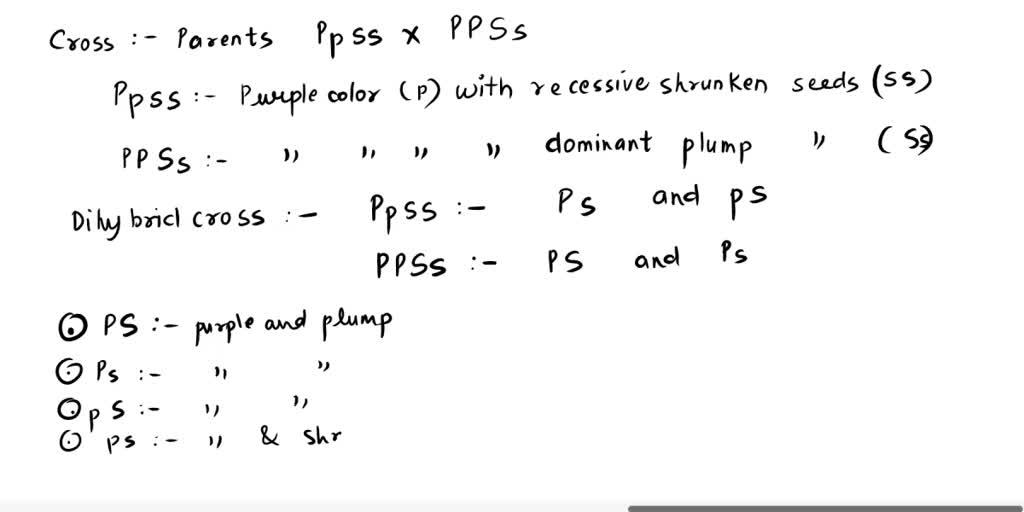 Cross :- Parents Ppss x PPSs
Ppss :- Purple color (P) with recessive shrunken seeds (ss)
PPSs :- " " " " dominant plump " (Ss)
Dihybrid cross :- Ppss :- Ps and ps
PPSs :- PS and Ps
PS :- purple and plump
Ps :- " "
pS :- " "
ps :- " & shr